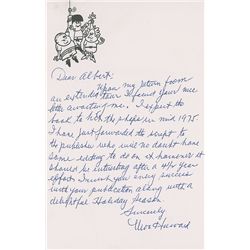 Dear Albert:
Upon my return from
an extended tour I found your nice
letter awaiting me. I expect the
book to hit the shops in mid 1975.
I have just forwarded the script to
the publisher who will no doubt have
some editing to do on it however it
should be interesting after a 4½ year
effort. I wish you every success
with your publication along with a
delightful Holiday Season.
Sincerely
Moe Howard